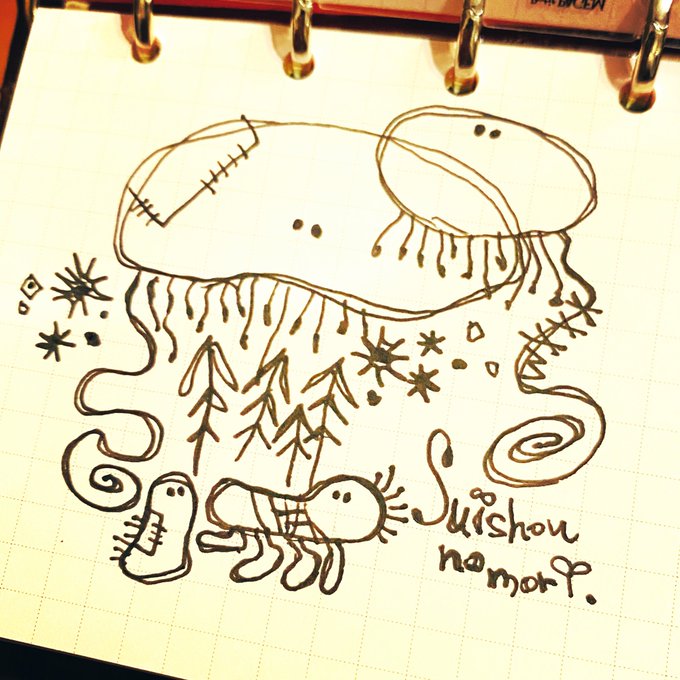 Suishou
no mori.